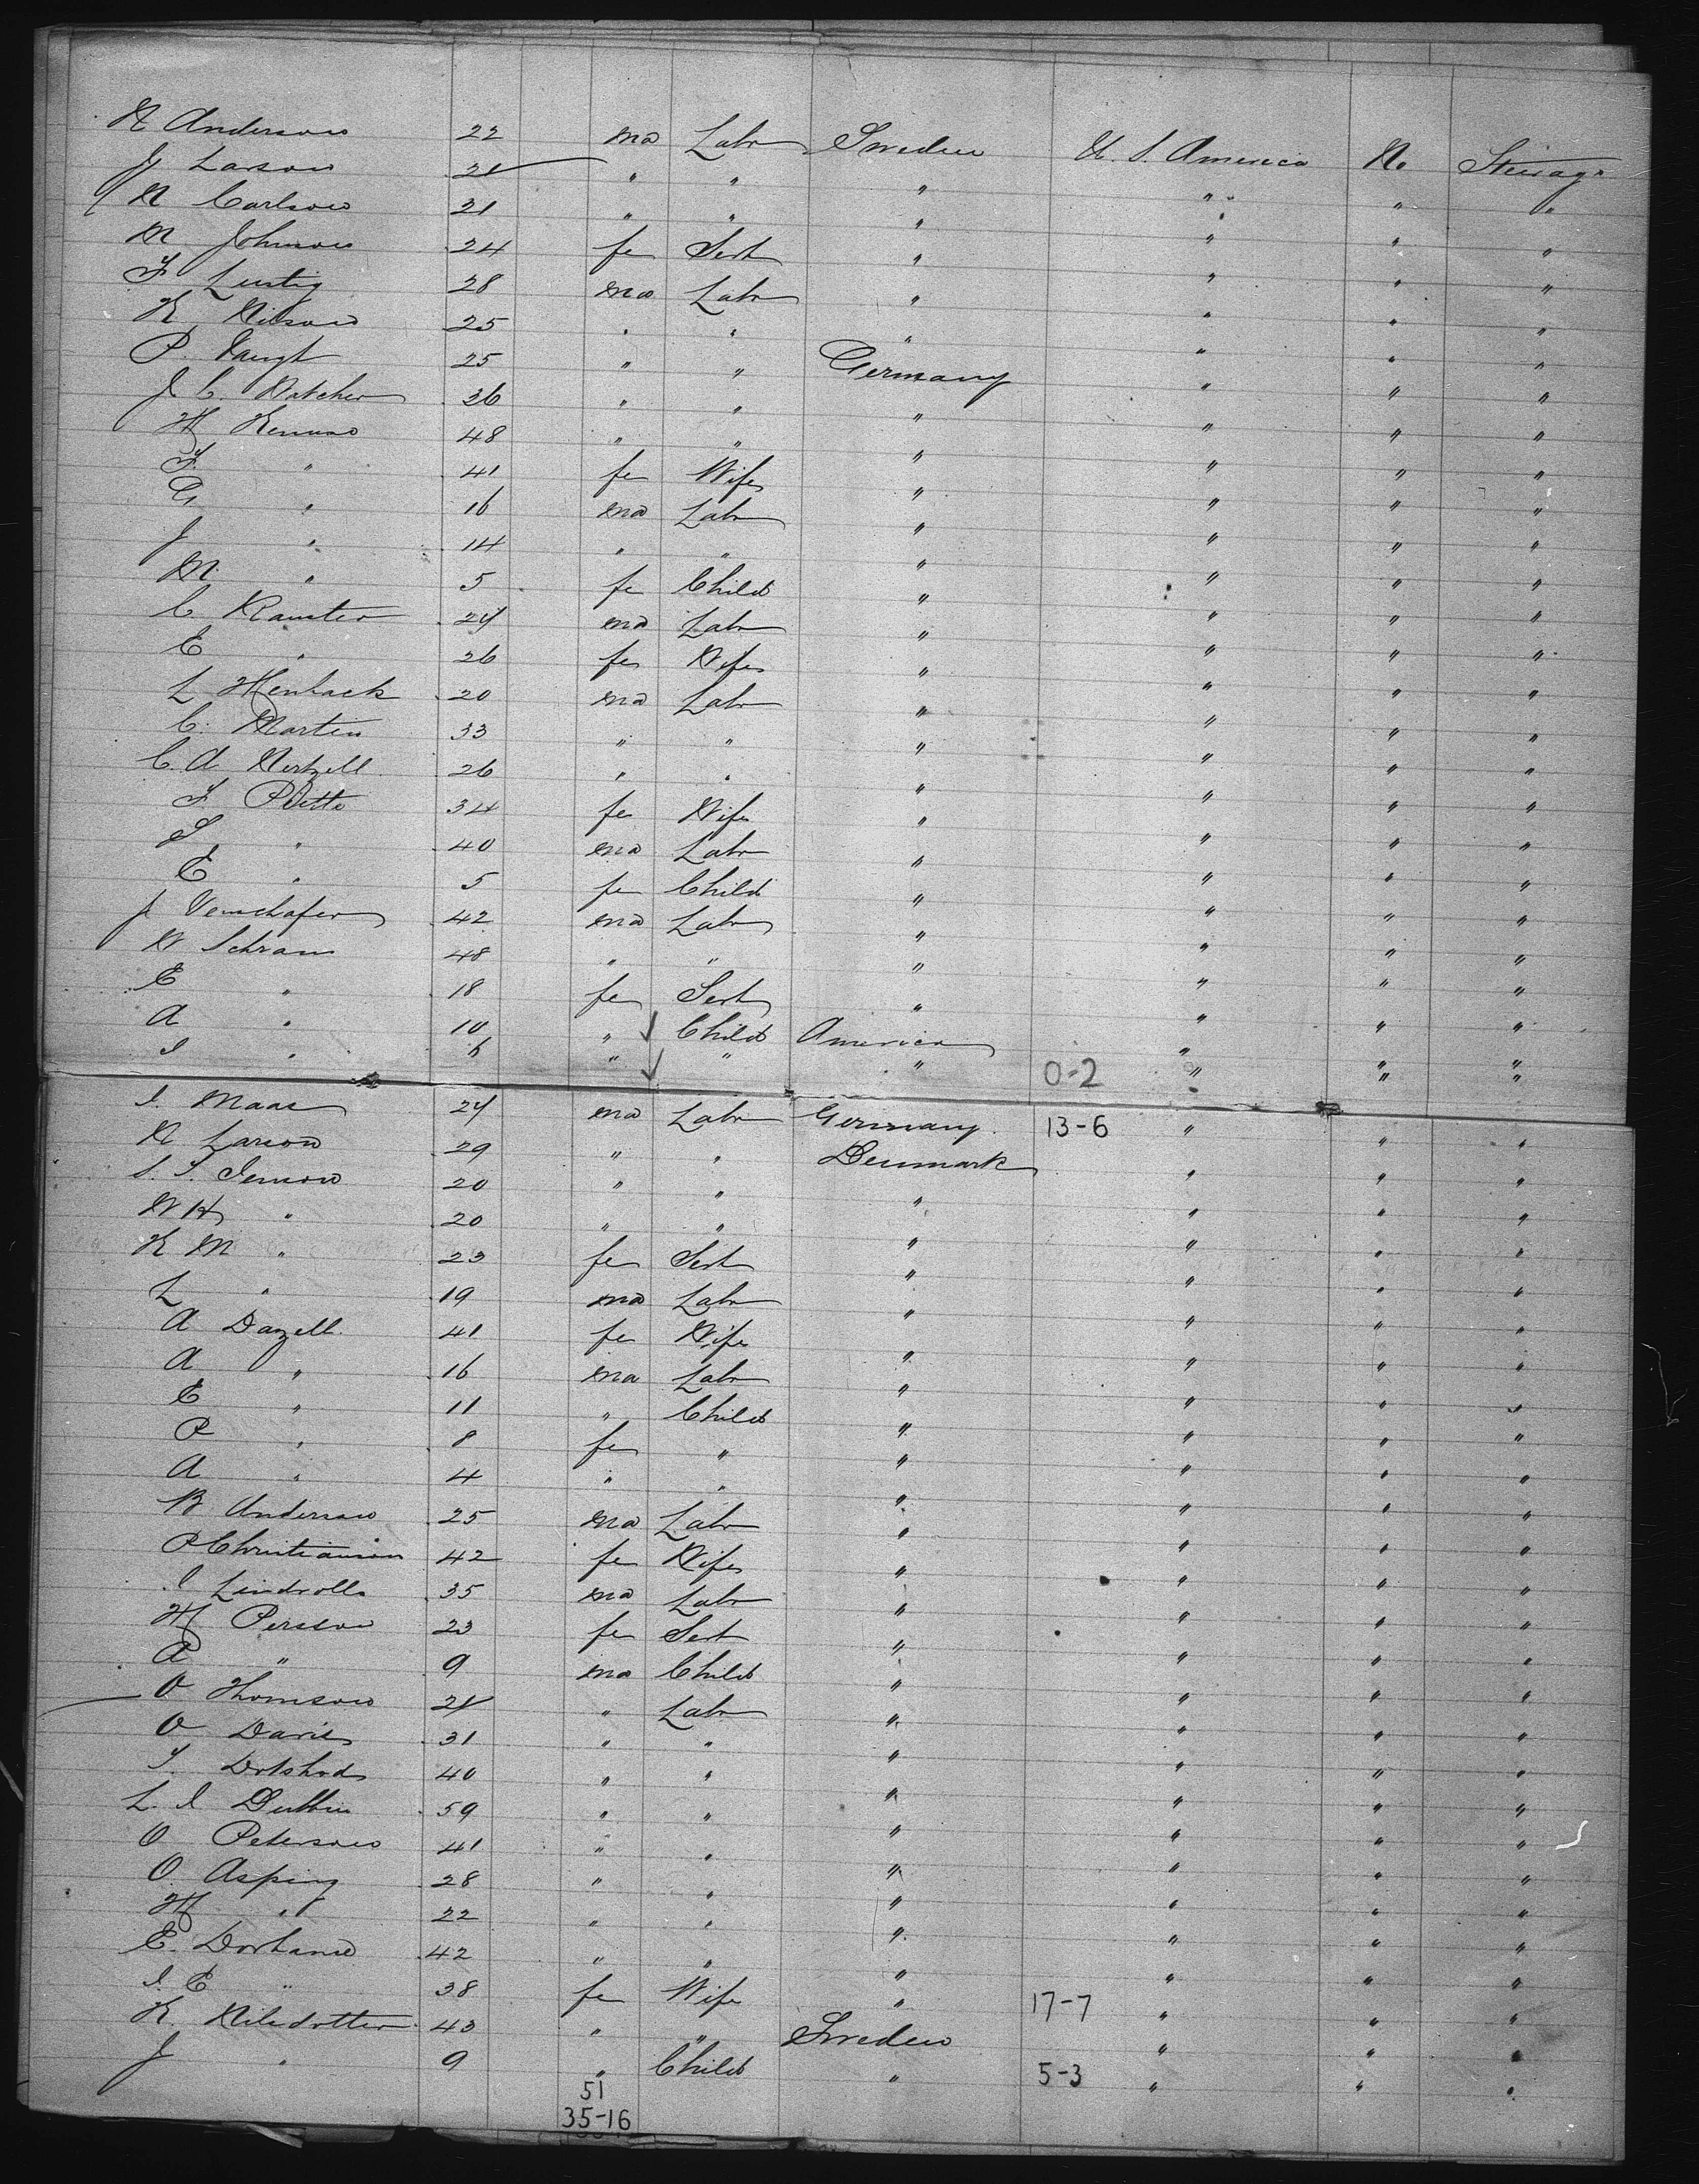 N Anderson 22 ma Labr Sweden U. S. America No Steerage
J Larson 21 " " " " " "
N Carlson 21 " " " " " "
M Johnson 24 fe Sert " " " "
F Lustig 28 ma Labr " " " "
K Nilson 25 " " " " " "
P. 25 " " Germany " " "
J. C. 36 " " " " " "
H 48 " " " " " "
F. " 41 fe Wife " " " "
G " 16 ma Labr " " " "
J " 14 " " " " " "
M " 5 fe Child " " " "
C. 24 ma Labr " " " "
E " 26 fe Wife " " " "
L 20 ma Labr " " " "
C. Martin 33 " " " " " "
C. A. 26 " " " " " "
F 34 fe Wife " " " "
S " 40 ma Labr " " " "
E " 5 fe Child " " " "
J 42 ma Labr " " " "
W Schram 48 " " " " " "
E " 18 fe Sert " " " "
A " 10 " Child America " " "
I " 6 " " " 0-2 " " "
I. Maas 24 ma Labr Germany 13-6 " " "
N Larson 29 " " Denmark " " "
S. S. Jenson 20 " " " " " "
W H " 20 " " " " " "
K M " 23 fe Sert " " " "
L " 19 ma Labr " " " "
A Dazell 41 fe Wife " " " "
A " 16 ma Labr " " " "
E " 11 " Child " " " "
P " 8 fe " " " " "
A " 4 " " " " " "
B Anderson 25 ma Labr " " " "
P Christianson 42 fe Wife " " " "
I 35 ma Labr " " " "
H Persson 23 fe Sert " " " "
A " 9 ma Child " " " "
O Thomson 21 " Labr " " " "
O Davis 31 " " " " " "
S. 40 " " " " " "
L. I 59 " " " " " "
O Peterson 41 " " " " " "
O. Asping 28 " " " " " "
H " 22 " " " " " "
E. 42 " " " " " "
I. E " 38 fe Wife " 17-7 " " "
K. Nilsdotter 43 " " Sweden " " "
J " 9 " Child " 5-3 " " "
51
35-16